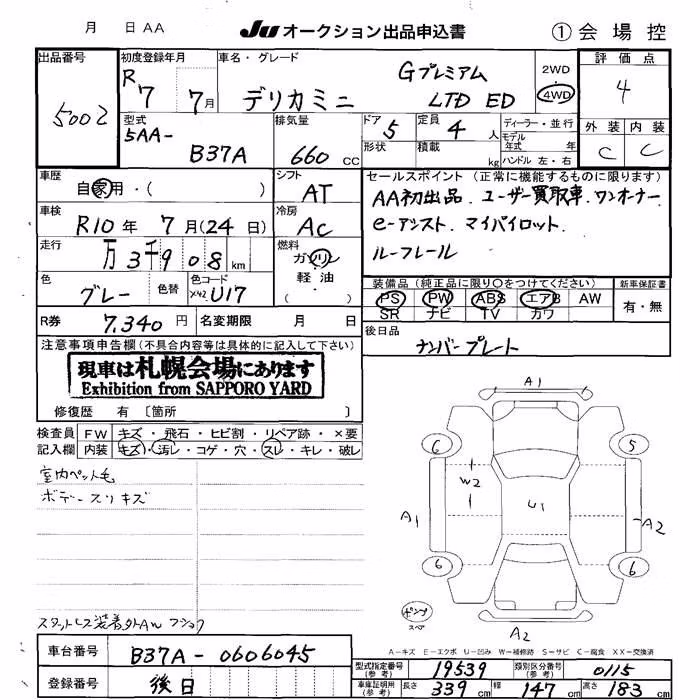 月 日 AA Ju オークション出品申込書 ①会場控
出品番号 初度登録年月 車名・グレード 評価点
5002 R7 7月 デリカミニ Gプレミアム LTD ED 2WD 4WD 4
型式 排気量 ドア 定員 ディーラー・並行 外装 内装
5AA- B37A 660 CC 5 4人 モデル年式 年 C C
形状 積載 kg ハンドル 左・右
車歴 シフト セールスポイント(正常に機能するものに限ります)
自家用・( ) AT AA初出品.ユーザー買取車.ワンオーナー
車検 冷房 e-アシスト.マイパイロット.
R10年 7月(24日) AC ルーフレール
走行 燃料
万3千908km ガソリン 軽油 ( )
装備品(純正品に限り○をつけてください) 新車保証書
色 色替 色コード PS PW ABS エアB AW 有・無
グレー X42 U17 SR ナビ TV カワ
R券 7,340円 名変期限 月 日 後日品
注意事項申告欄(不具合内容等は具体的に記入して下さい) ナンバープレート
現車は札幌会場にあります
Exhibition from SAPPORO YARD
修復歴 有 〔箇所 〕
検査員記入欄 FW キズ・飛石・ヒビ割・リペア跡・×要
内装 キズ・汚レ・コゲ・穴・スレ・キレ・破レ
室内ペット毛
ボデースリキズ
A1
6 5
W2 U1
A1 A2
6 6
テンプ スペア
A2
スタットレス装着外AW
A-キズ E-エクボ U-凹み W-補修跡 S-サビ C-腐食 XX-交換済
車台番号 B37A-0606045
型式指定番号(参考) 19539 類別区分番号(参考) 0115
登録番号 後日
車庫証明用(参考) 長さ 339cm 幅 147cm 高さ 183cm